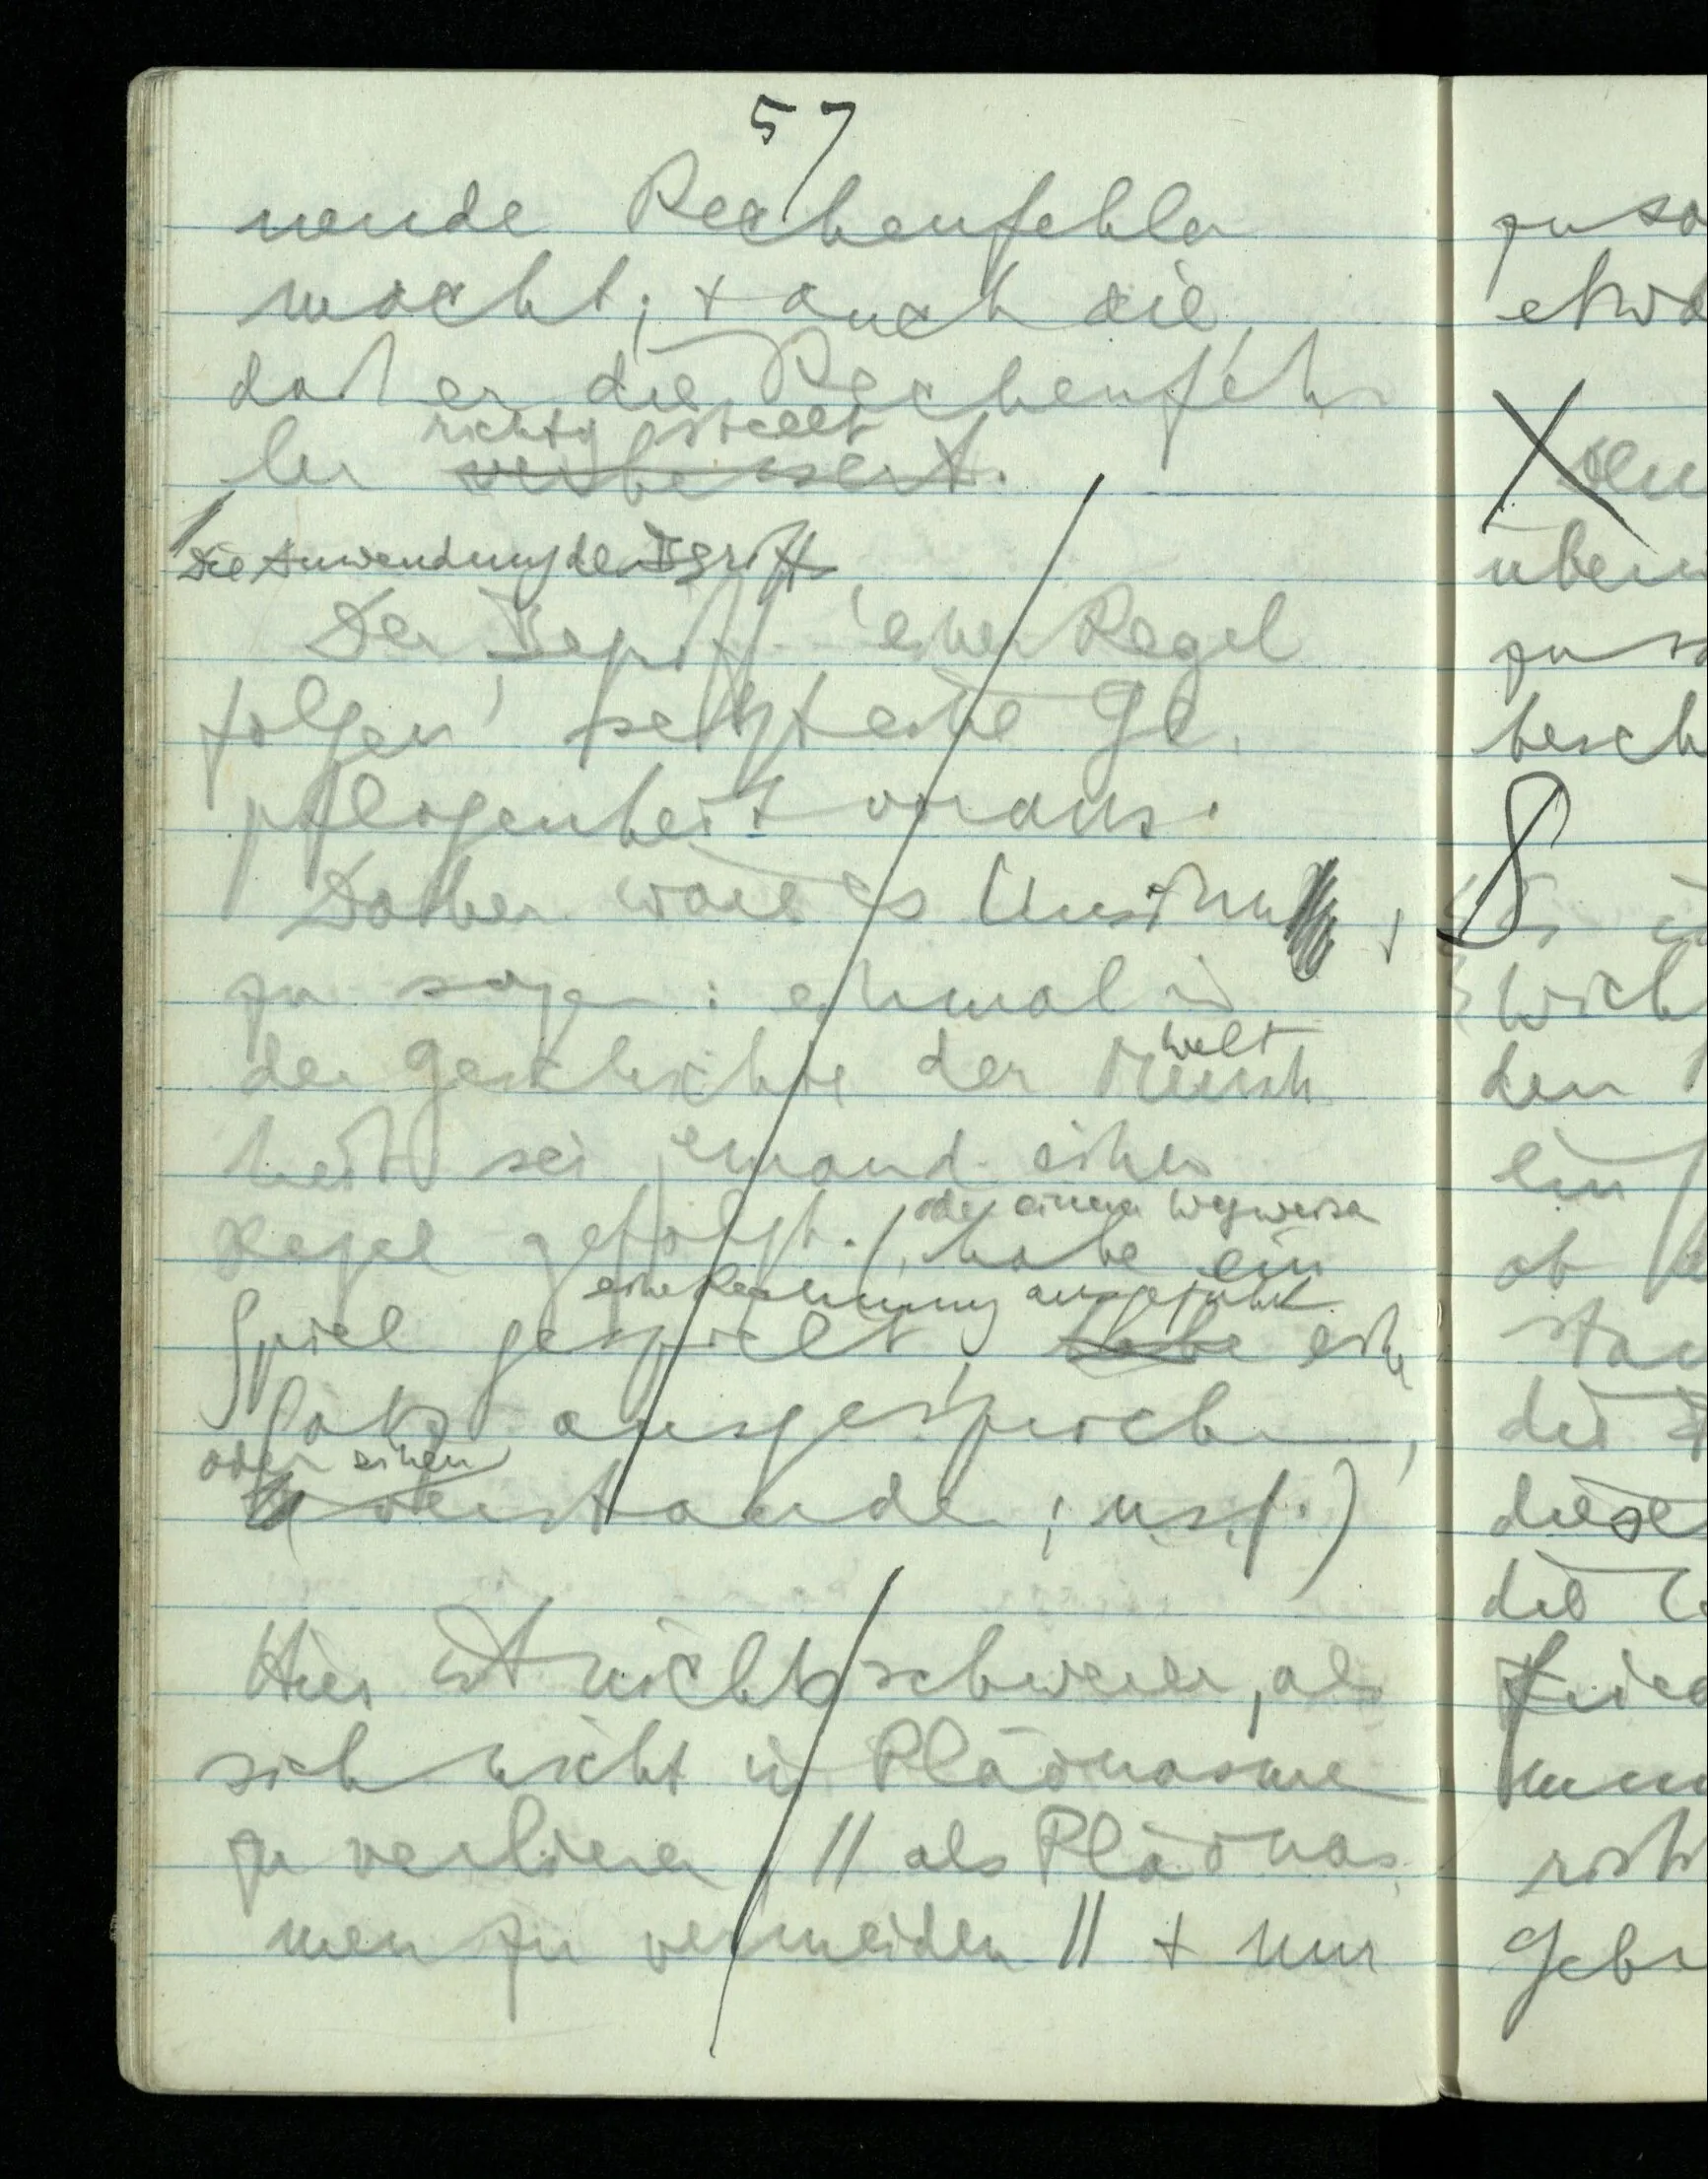 57
nende Rechenfehler
macht; + auch die,
daß er die Rechenfeh-
ler verbessert.
richtig stellt
Die Anwendung des Begriffs
Der Begriff 'einer Regel
folgen' setzt eine Ge-
pflogenheit voraus.
Daher wäre es Unsinn
zu sagen: einmal in
der Geschichte der Mensch
welt
heit sei jemand einer
Regel gefolgt. (habe ein
oder einem Wegweiser
Spiel gespielt, habe einen
eine Rechnung ausgeführt
Satz ausgesprochen,
oder einen
verstanden; usf.)
Hier ist nichts schwerer, als
sich nicht in Pläonasme
zu verlieren // als Pläonas-
men zu vermeiden // + nur
zu sa
etwa
X Den
übern
zu sa
besch
8
Es
wich
den
ein
ob
stau
die
diese
die
Frie
mu
rist
Gebr